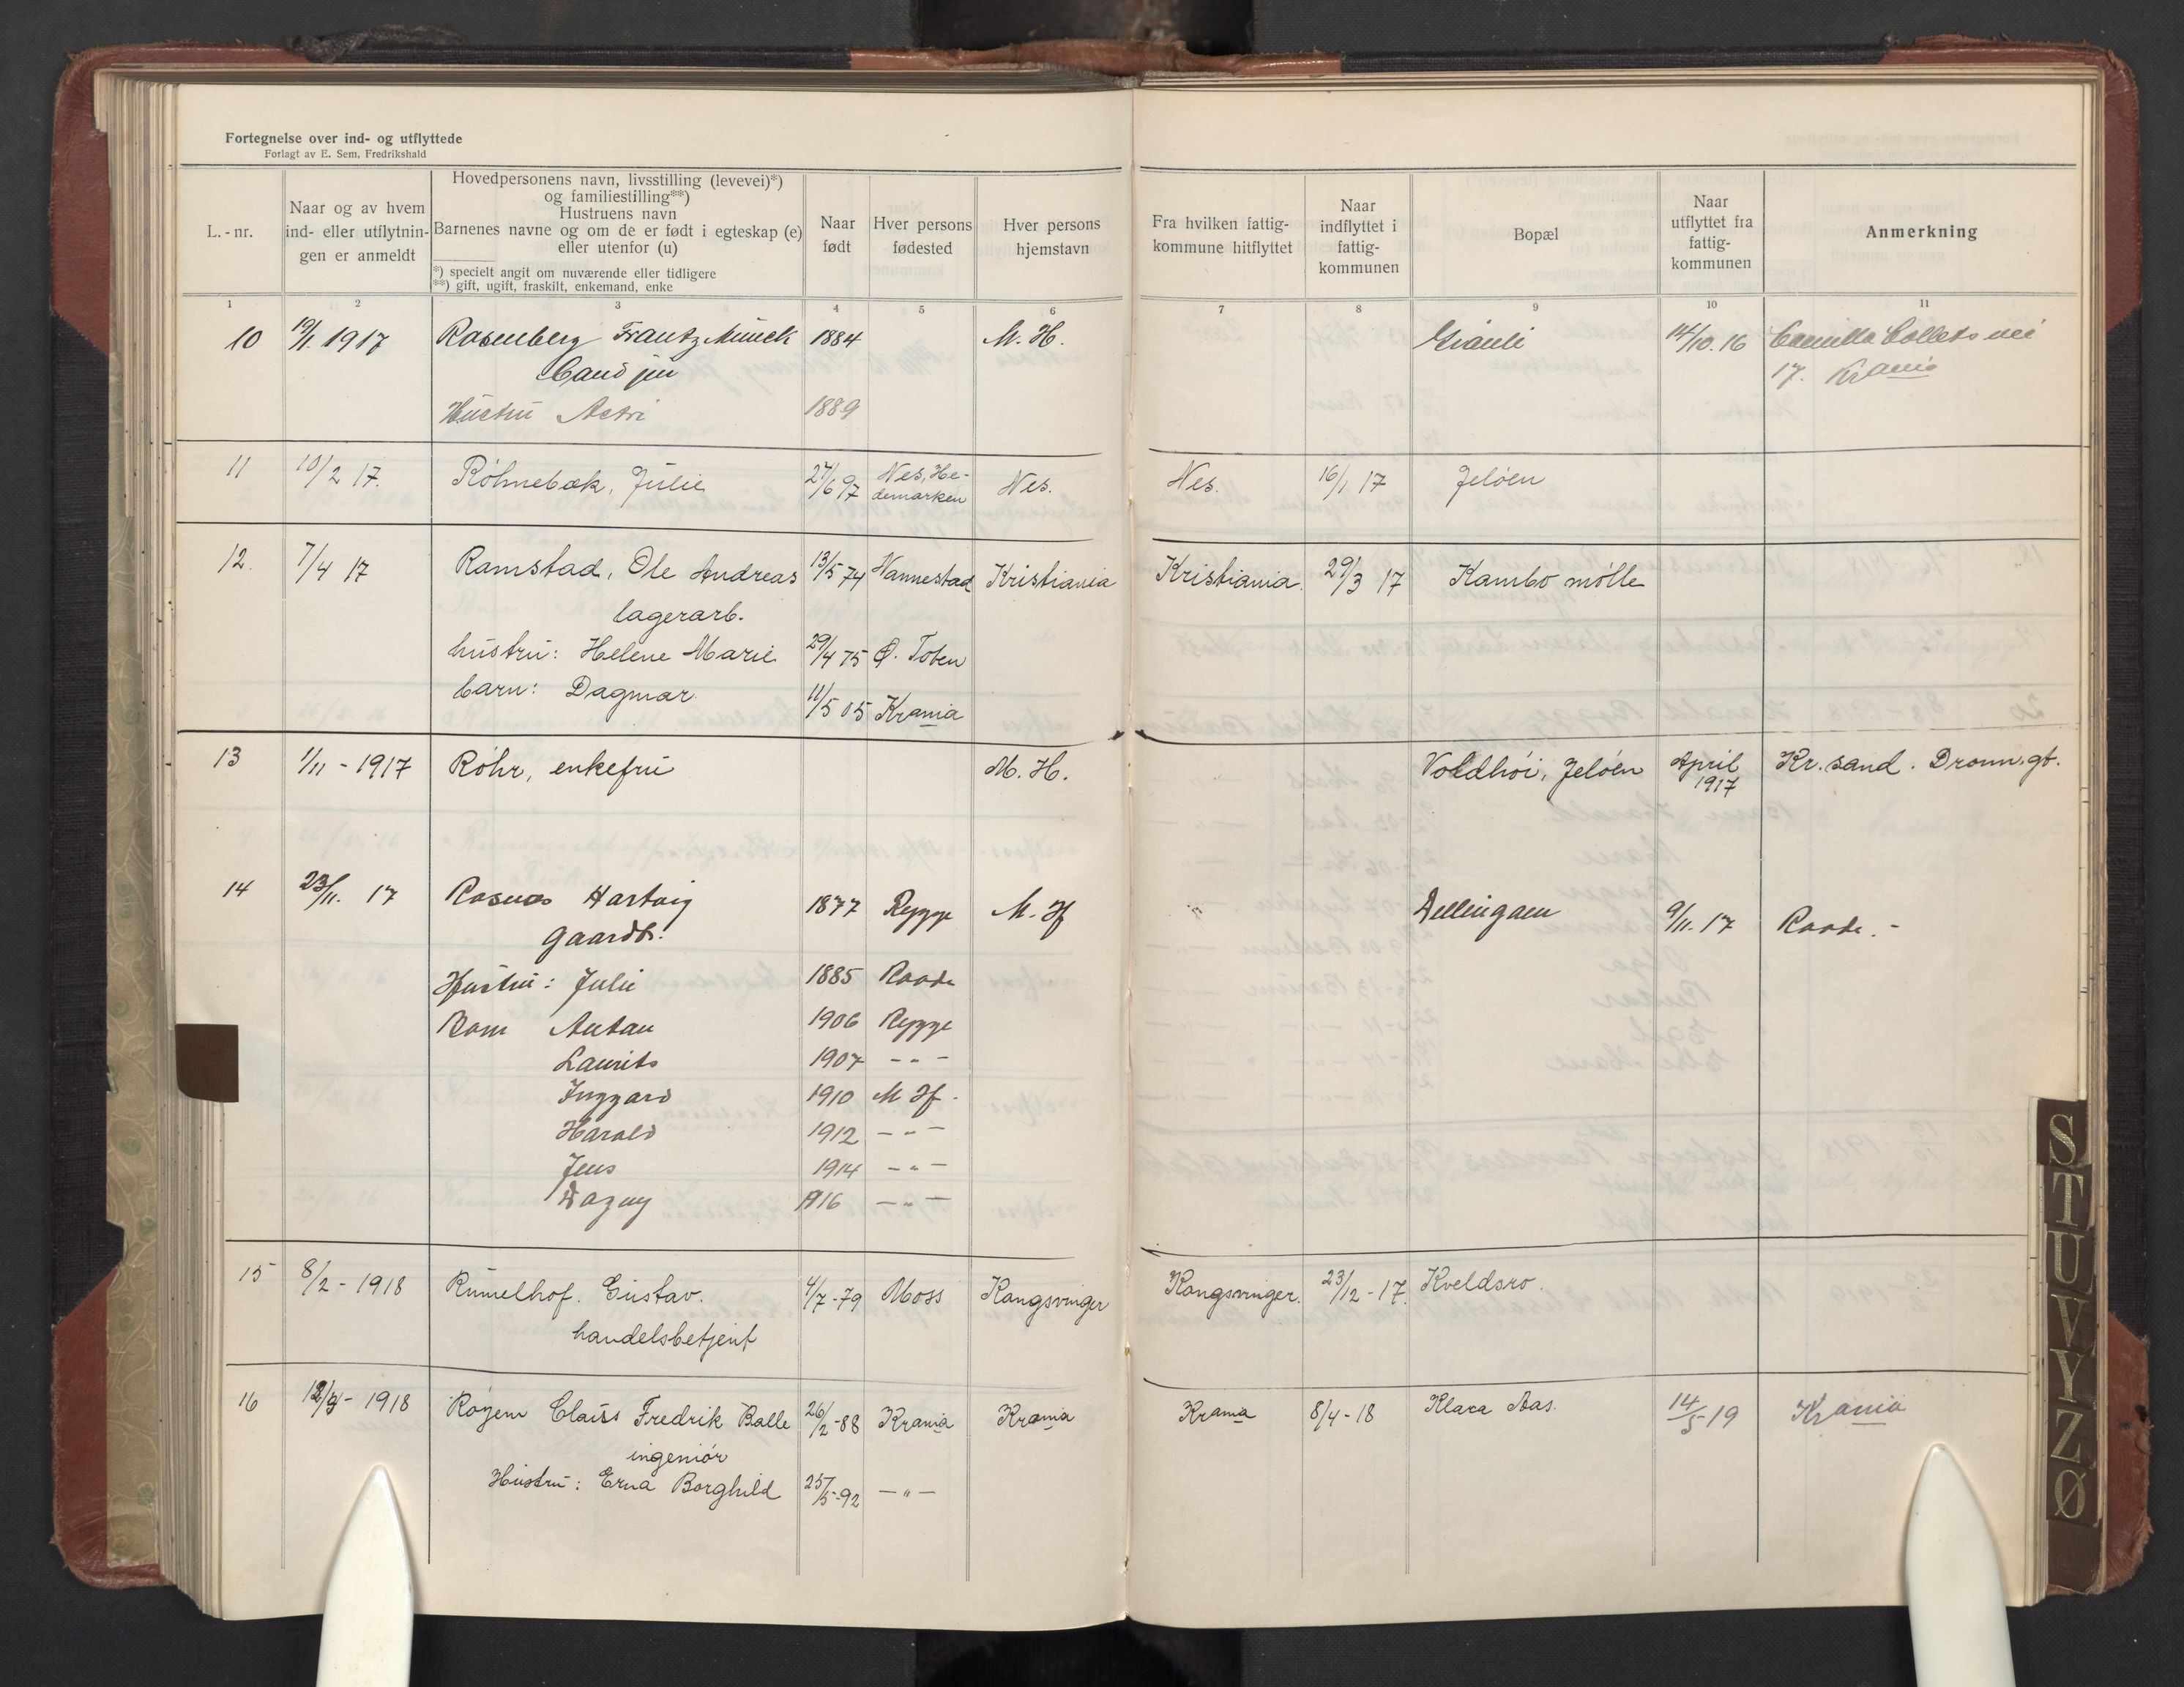 Fortegnelse over ind- og utflyttede
Forlagt av E. Sem, Fredrikshald
L.-nr.
Naar og av hvem ind- eller utflytnin- gen er anmeldt
Hovedpersonens navn, livsstilling (levevei)*)
og familiestilling**)
Hustruens navn
Barnenes navne og om de er født i egteskap (e)
eller utenfor (u)
*) specielt angit om nuværende eller tidligere
**) gift, ugift, fraskilt, enkemand, enke
Naar født
Hver persons fødested
Hver persons hjemstavn
Fra hvilken fattig- kommune hitflyttet
Naar indflyttet i fattig- kommunen
Bopæl
Naar utflyttet fra fattig- kommunen
Anmerkning
1 2 3 4 5 6 7 8 9 10 11
10 19/1. 1917 Rosenberg Frantz Münck 1884 M. H. 14/10. 16 Camilla Collets vei
Cand jur 17. Krania
Hustru Astri 1889
11 10/2 17. Röhnebæk, Julie 27/6 97 Nes, He- demarken Nes. Nes. 16/1 17 Jelöen
12. 7/4 17 Ramstad, Ole Andreas 13/5 74 Vannestad Kristiania Kristiania. 29/3 17 Kambo mölle
lagerarb.
hustru: Helene Marie 29/4 75 Ø. Toten
barn: Dagmar 11/5 05 Krania
13 1/11 - 1917 Röhr, enkefru M. H. Voldhöi, Jelöen April 1917 Kr.sand. Dronn.gt.
14 23/11. 17 Rosnes Hartvig 1877 Rygge M. H Dillingaen 9/11. 17 Raade. -
gaardb.
Hustru: Julie 1885 Raade
Barn Anton 1906 Rygge
Laurits 1907 - " -
Inggard 1910 M H.
Harald 1912 - " -
Jens 1914 - " -
Dagny 1916 - " -
15 8/2 - 1918 Rumelhof. Gustav. 4/7 - 79 Moss Kongsvinger Kongsvinger. 23/12 - 17. Kveldsro.
handelsbetjent
16 - 1918 Royem Clauss Fredrik Balle 26/2 - 88 Krania Krania Krania 8/4 - 18 Klara Aas. 14/5 19 Krania
ingeniör
Hustru: Erna Borghild 25/5 - 92 - " -
S
T
U
V
Y
Z
Ø